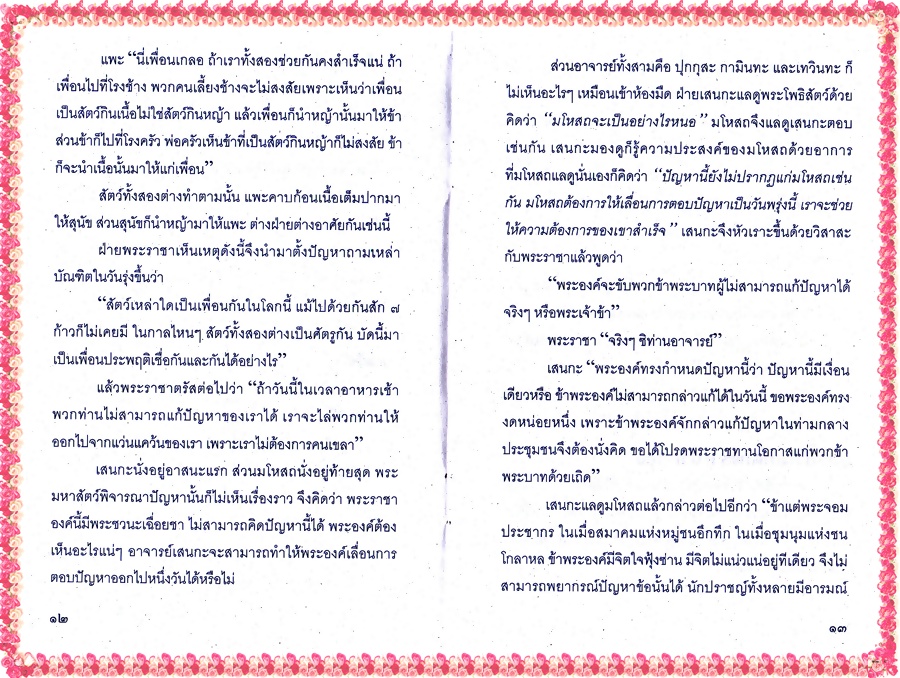 แพะ “นี่เพื่อนเกลอ ถ้าเราทั้งสองช่วยกันคงสำเร็จแน่ ถ้า
เพื่อนไปที่โรงช้าง พวกคนเลี้ยงช้างจะไม่สงสัยเพราะเห็นว่าเพื่อน
เป็นสัตว์กินเนื้อไม่ใช่สัตว์กินหญ้า แล้วเพื่อนก็นำหญ้านั้นมาให้ข้า
ส่วนข้าก็ไปที่โรงครัว พ่อครัวเห็นข้าที่เป็นสัตว์กินหญ้าก็ไม่สงสัย ข้า
ก็จะนำเนื้อนั้นมาให้แก่เพื่อน”
สัตว์ทั้งสองต่างทำตามนั้น แพะคาบก้อนเนื้อเต็มปากมา
ให้สุนัข ส่วนสุนัขก็นำหญ้ามาให้แพะ ต่างฝ่ายต่างอาศัยกันเช่นนี้
ฝ่ายพระราชาเห็นเหตุดังนี้จึงนำมาตั้งปัญหาถามเหล่า
บัณฑิตในวันรุ่งขึ้นว่า
“สัตว์เหล่าใดเป็นเพื่อนกันในโลกนี้ แม้ไปด้วยกันสัก ๗
ก้าวก็ไม่เคยมี ในกาลไหนๆ สัตว์ทั้งสองต่างเป็นศัตรูกัน บัดนี้มา
เป็นเพื่อนประพฤติเชื่อกันและกันได้อย่างไร”
แล้วพระราชาตรัสต่อไปว่า “ถ้าวันนี้ในเวลาอาหารเช้า
พวกท่านไม่สามารถแก้ปัญหาของเราได้ เราจะไล่พวกท่านให้
ออกไปจากแว่นแคว้นของเรา เพราะเราไม่ต้องการคนเขลา”
เสนกะนั่งอยู่อาสนะแรก ส่วนมโหสถนั่งอยู่ท้ายสุด พระ
มหาสัตว์พิจารณาปัญหานั้นก็ไม่เห็นเรื่องราว จึงคิดว่า พระราชา
องค์นี้มีพระชวนะเฉื่อยชา ไม่สามารถคิดปัญหานี้ได้ พระองค์ต้อง
เห็นอะไรแน่ๆ อาจารย์เสนกะจะสามารถทำให้พระองค์เลื่อนการ
ตอบปัญหาออกไปหนึ่งวันได้หรือไม่
๑๒
ส่วนอาจารย์ทั้งสามคือ ปุกกุสะ กามินทะ และเทวินทะ ก็
ไม่เห็นอะไรๆ เหมือนเข้าห้องมืด ฝ่ายเสนกะแลดูพระโพธิสัตว์ด้วย
คิดว่า “มโหสถจะเป็นอย่างไรหนอ” มโหสถจึงแลดูเสนกะตอบ
เช่นกัน เสนกะมองดูก็รู้ความประสงค์ของมโหสถด้วยอาการ
ที่มโหสถแลดูนั่นเองก็คิดว่า “ปัญหานี้ยังไม่ปรากฏแก่มโหสถเช่น
กัน มโหสถต้องการให้เลื่อนการตอบปัญหาเป็นวันพรุ่งนี้ เราจะช่วย
ให้ความต้องการของเขาสำเร็จ” เสนกะจึงหัวเราะขึ้นด้วยวิสาสะ
กับพระราชาแล้วพูดว่า
“พระองค์จะขับพวกข้าพระบาทผู้ไม่สามารถแก้ปัญหาได้
จริงๆ หรือพระเจ้าข้า”
พระราชา “จริงๆ ซิท่านอาจารย์”
เสนกะ “พระองค์ทรงกำหนดปัญหานี้ว่า ปัญหานี้มีเงื่อน
เดียวหรือ ข้าพระองค์ไม่สามารถกล่าวแก้ได้ในวันนี้ ขอพระองค์ทรง
งดหน่อยหนึ่ง เพราะข้าพระองค์จักกล่าวแก้ปัญหาในท่ามกลาง
ประชุมชนจึงต้องนั่งคิด ขอได้โปรดพระราชทานโอกาสแก่พวกข้า
พระบาทด้วยเถิด”
เสนกะแลดูมโหสถแล้วกล่าวต่อไปอีกว่า “ข้าแต่พระจอม
ประชากร ในเมื่อสมาคมแห่งหมู่ชนอึกทึก ในเมื่อชุมนุมแห่งชน
โกลาหล ข้าพระองค์มีจิตใจฟุ้งซ่าน มีจิตไม่แน่วแน่อยู่ทีเดียว จึงไม่
สามารถพยากรณ์ปัญหาข้อนั้นได้ นักปราชญ์ทั้งหลายมีอารมณ์
๑๓